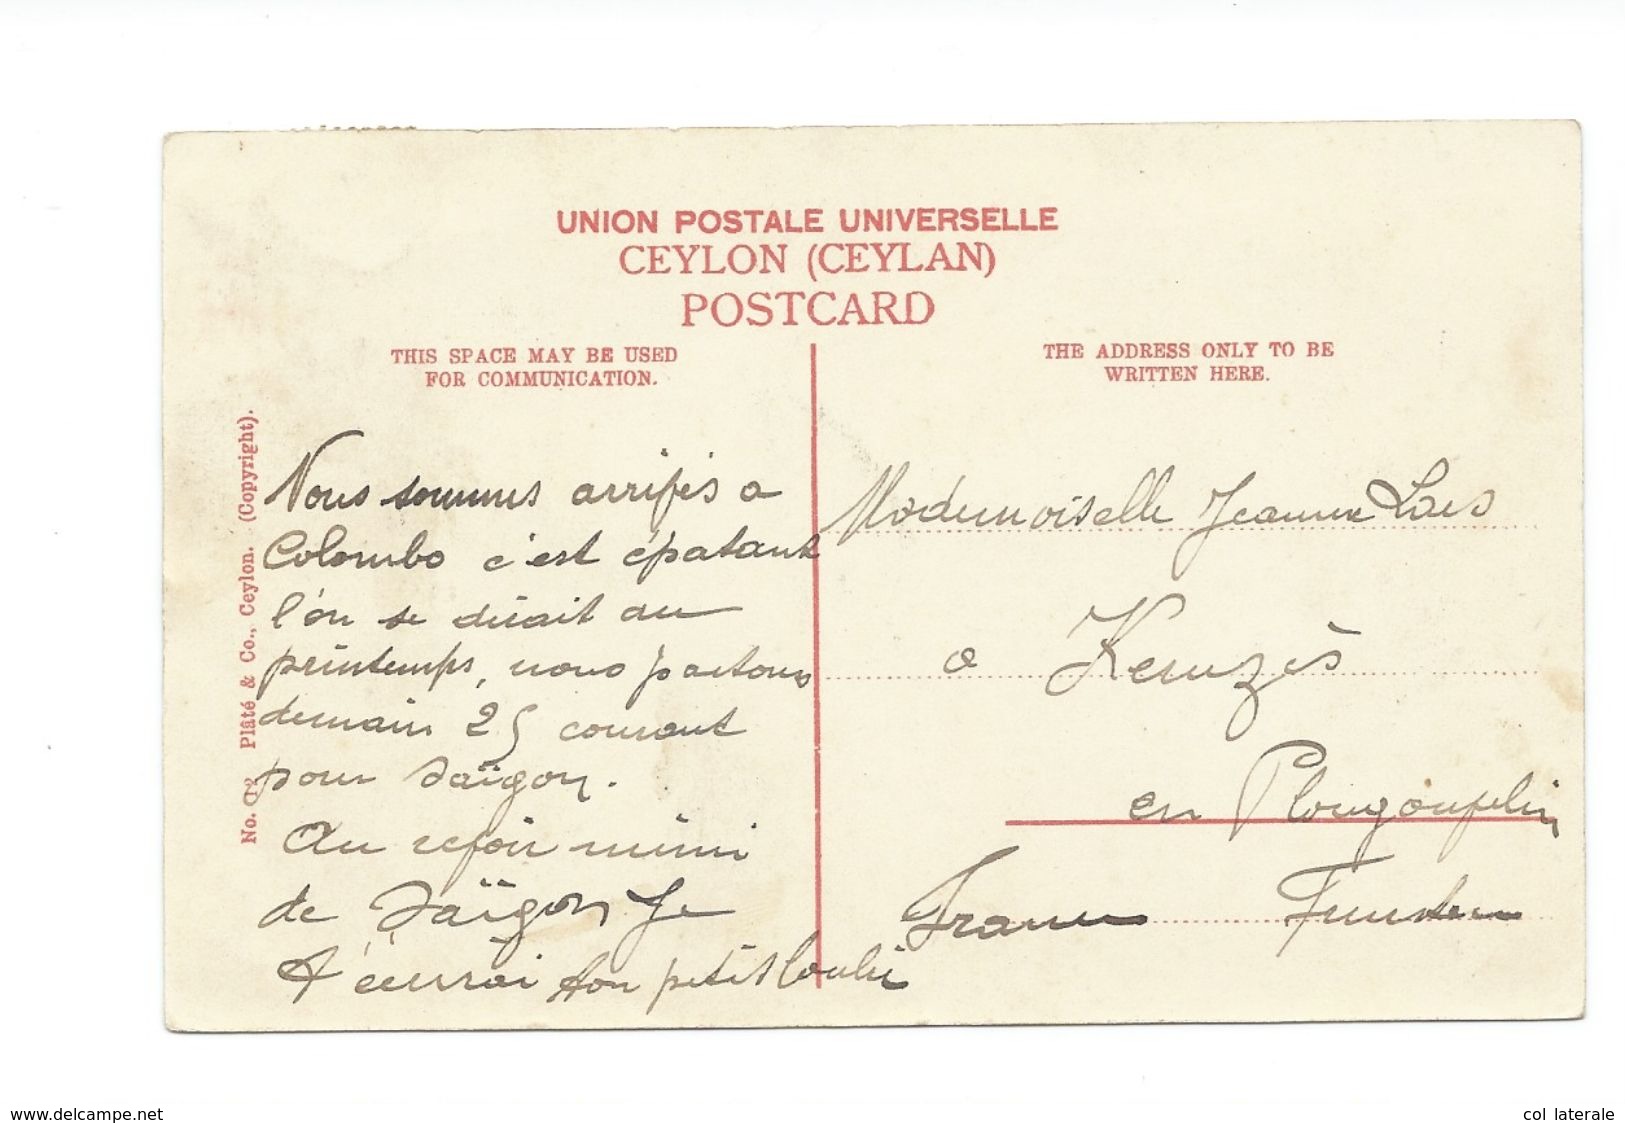 UNION POSTALE UNIVERSELLE
CEYLON (CEYLAN)
POSTCARD
THIS SPACE MAY BE USED
FOR COMMUNICATION.
THE ADDRESS ONLY TO BE
WRITTEN HERE.
No. Plâté & Co., Ceylon. (Copyright).
Nous sommes arrifés a
Colombo c'est épatant
l'on se dirait au
printemps, nous partons
demain 25 courant
pour Saïgon.
Au refoir mimi
de Saïgon Je
t'écurrai ton petit
Mademoiselle Jeanne
a
en Plougonfelin
France Finistere
www.delcampe.net
col laterale